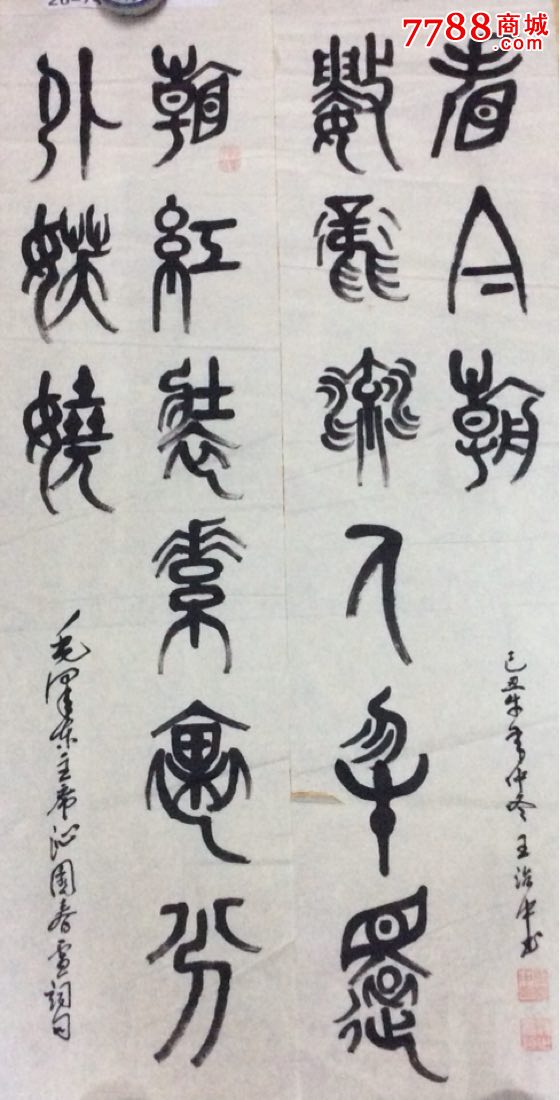 7788商城
.com
數風流人物還
看今朝
己丑牛年仲冬王治中书
看紅裝素裹分
外妖嬈
毛澤东主席沁園春雪詞句